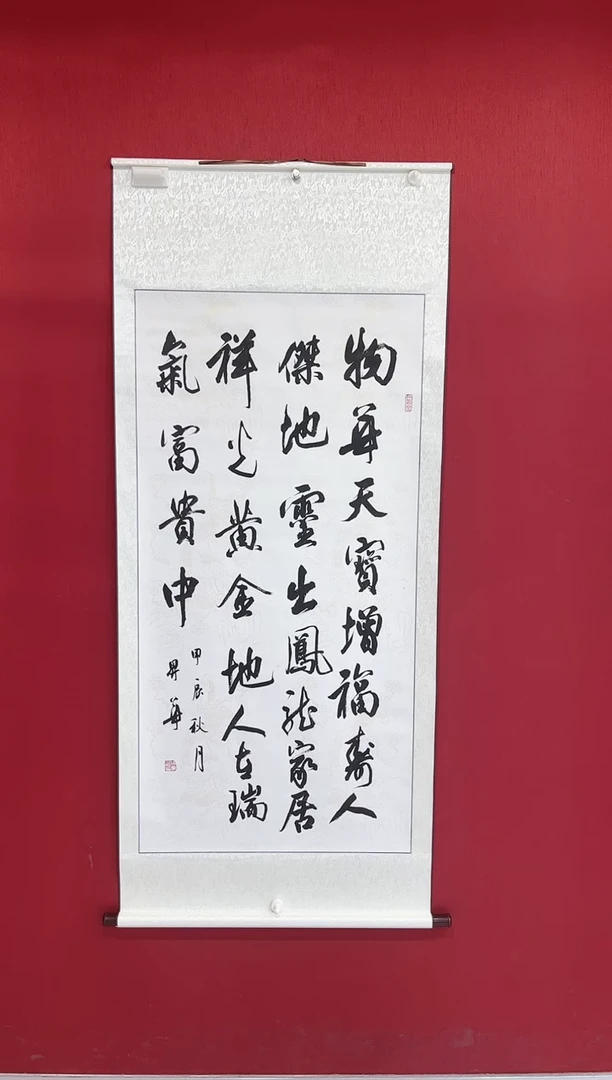 物華天寶增福壽人
傑地靈出鳳龍家居
祥光黄金地人在瑞
氣富貴中
甲辰秋月
昇華